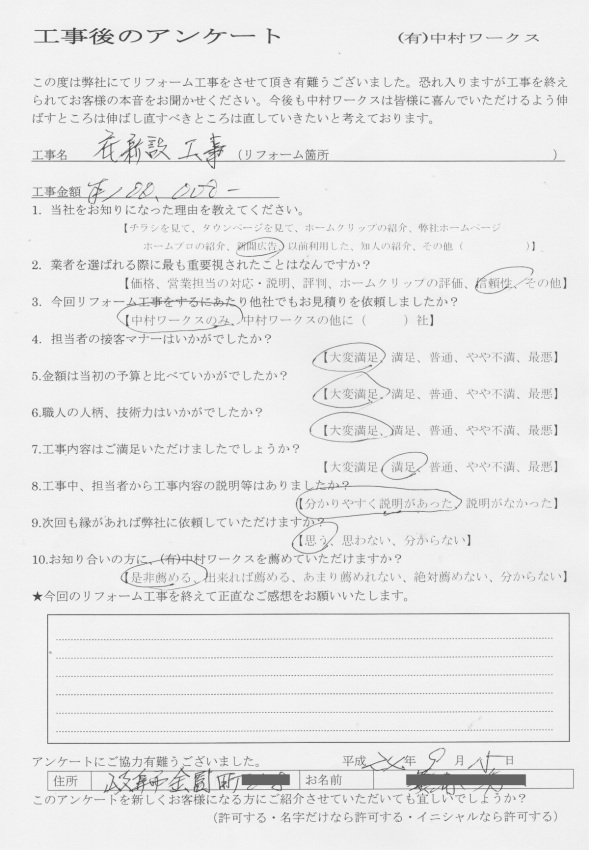 工事後のアンケート (有)中村ワークス
この度は弊社にてリフォーム工事をさせて頂き有難うございました。恐れ入りますが工事を終え
られてお客様の本音をお聞かせください。今後も中村ワークスは皆様に喜んでいただけるよう伸
ばすところは伸ばし直すべきところは直していきたいと考えております。
工事名 新設工事 (リフォーム箇所 )
工事金額
1. 当社をお知りになった理由を教えてください。
【チラシを見て、タウンページを見て、ホームクリップの紹介、弊社ホームページ
ホームプロの紹介、新聞広告、以前利用した、知人の紹介、その他( )】
2. 業者を選ばれる際に最も重要視されたことはなんですか?
【価格、営業担当の対応・説明、評判、ホームクリップの評価、信頼性、その他】
3. 今回リフォーム工事をするにあたり他社でもお見積りを依頼しましたか?
【中村ワークスのみ、中村ワークスの他に( )社】
4. 担当者の接客マナーはいかがでしたか?
【大変満足、満足、普通、やや不満、最悪】
5.金額は当初の予算と比べていかがでしたか?
【大変満足、満足、普通、やや不満、最悪】
6.職人の人柄、技術力はいかがでしたか?
【大変満足、満足、普通、やや不満、最悪】
7.工事内容はご満足いただけましたでしょうか?
【大変満足、満足、普通、やや不満、最悪】
8.工事中、担当者から工事内容の説明等はありましたか?
【分かりやすく説明があった、説明がなかった】
9.次回も縁があれば弊社に依頼していただけますか?
【思う、思わない、分からない】
10.お知り合いの方に、(有)中村ワークスを薦めていただけますか?
【是非薦める、出来れば薦める、あまり薦めれない、絶対薦めない、分からない】
★今回のリフォーム工事を終えて正直なご感想をお願いいたします。
アンケートにご協力有難うございました。 平成 年 9 月 日
住所 岐阜市金園町 お名前
このアンケートを新しくお客様になる方にご紹介させていただいても宜しいでしょうか?
(許可する・名字だけなら許可する・イニシャルなら許可する)